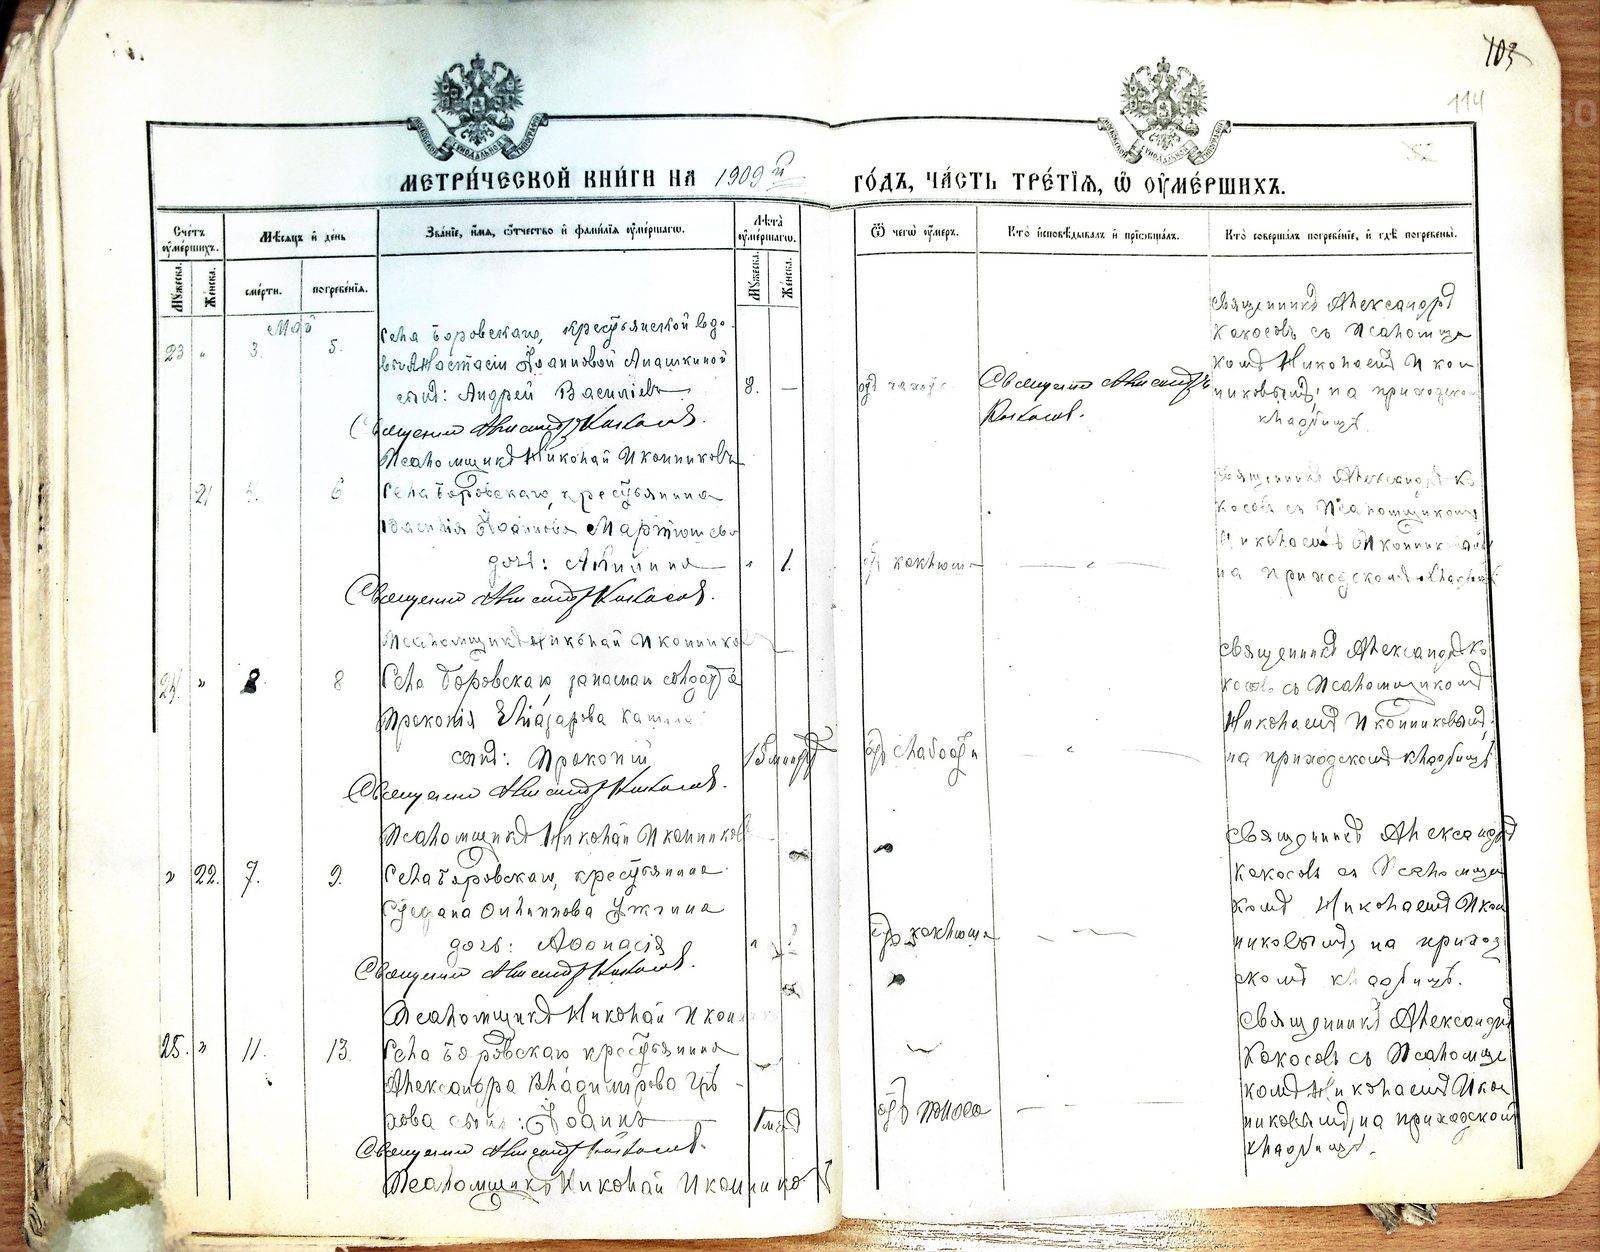 103
114
МЕТРИ́ЧЕСКОЙ КНИ́ГИ НА 1909 й
ГО́ДЪ, ЧА́СТЬ ТРЕ́ТІЯ, Ѿ ОУМЕ́РШИХЪ.
Счетъ оумершихъ.
Мѣсяцъ и день
Званіе, имя, отчество и фамилія оумершаго.
Лѣта оумершаго.
Ѿ чегѡ оумеръ.
Кто исповѣдывалъ и пріобщалъ.
Кто совершалъ погребеніе, и гдѣ погребены.
Мужеска.
Женска.
смерти.
погребенія.
Мужеска.
Женска.
Май
23 " 3. 5.
Села Боровскаго, крестьянской вдо-
вы Анастасіи Іоанновой
сынъ: Андрей Васильевъ
8. —
Священникъ Александръ Кокосовъ.
Псаломщикъ Николай Иконниковъ
Священникъ Александръ
Кокосовъ.
Священникъ Александръ
Кокосовъ съ Псаломщи
комъ Николаемъ Икон
никовымъ, на приходском
кладбищѣ.
21 6
Села Боровскаго, крестьянина
Василія Іоаннова
дочь:
" 1.
Священникъ Александръ Кокосовъ.
Псаломщикъ Николай Иконников
отъ коклюша
— " —
Священникъ Александръ Ко
косовъ съ Псаломщикомъ
Николаемъ Иконниковымъ
на приходскомъ кладбищѣ
24. " 8
Села Боровскаго запаснаго солдата
Прокопія Елиазарова
сынъ: Прокопій
15 минутъ
Священникъ Александръ Кокосовъ.
Псаломщикъ Николай Иконников
отъ слабости
— " —
Священникъ Александръ Ко
косовъ съ Псаломщикомъ
Николаемъ Иконниковымъ,
на приходскомъ кладбищѣ
" 22. 7. 9.
Села Боровскаго, крестьянина
Стефана Филиппова Ужгина
дочь: Афонасія
"
Священникъ Александръ Кокосовъ.
Псаломщикъ Николай Иконник
отъ коклюша
— " —
Священникъ Александръ
Кокосовъ съ Псаломщи
комъ Николаемъ Икон
никовымъ, на приход
скомъ кладбищѣ.
25. " 11. 13.
Села Боровскаго крестьянина
Александра Владимірова
сынъ: Іоаннъ
Священникъ Александръ Кокосовъ.
Псаломщикъ Николай Иконников
отъ поноса
— " —
Священникъ Александръ
Кокосовъ съ Псаломщи
комъ Николаемъ Икон
никовымъ, на приходском
кладбищѣ.